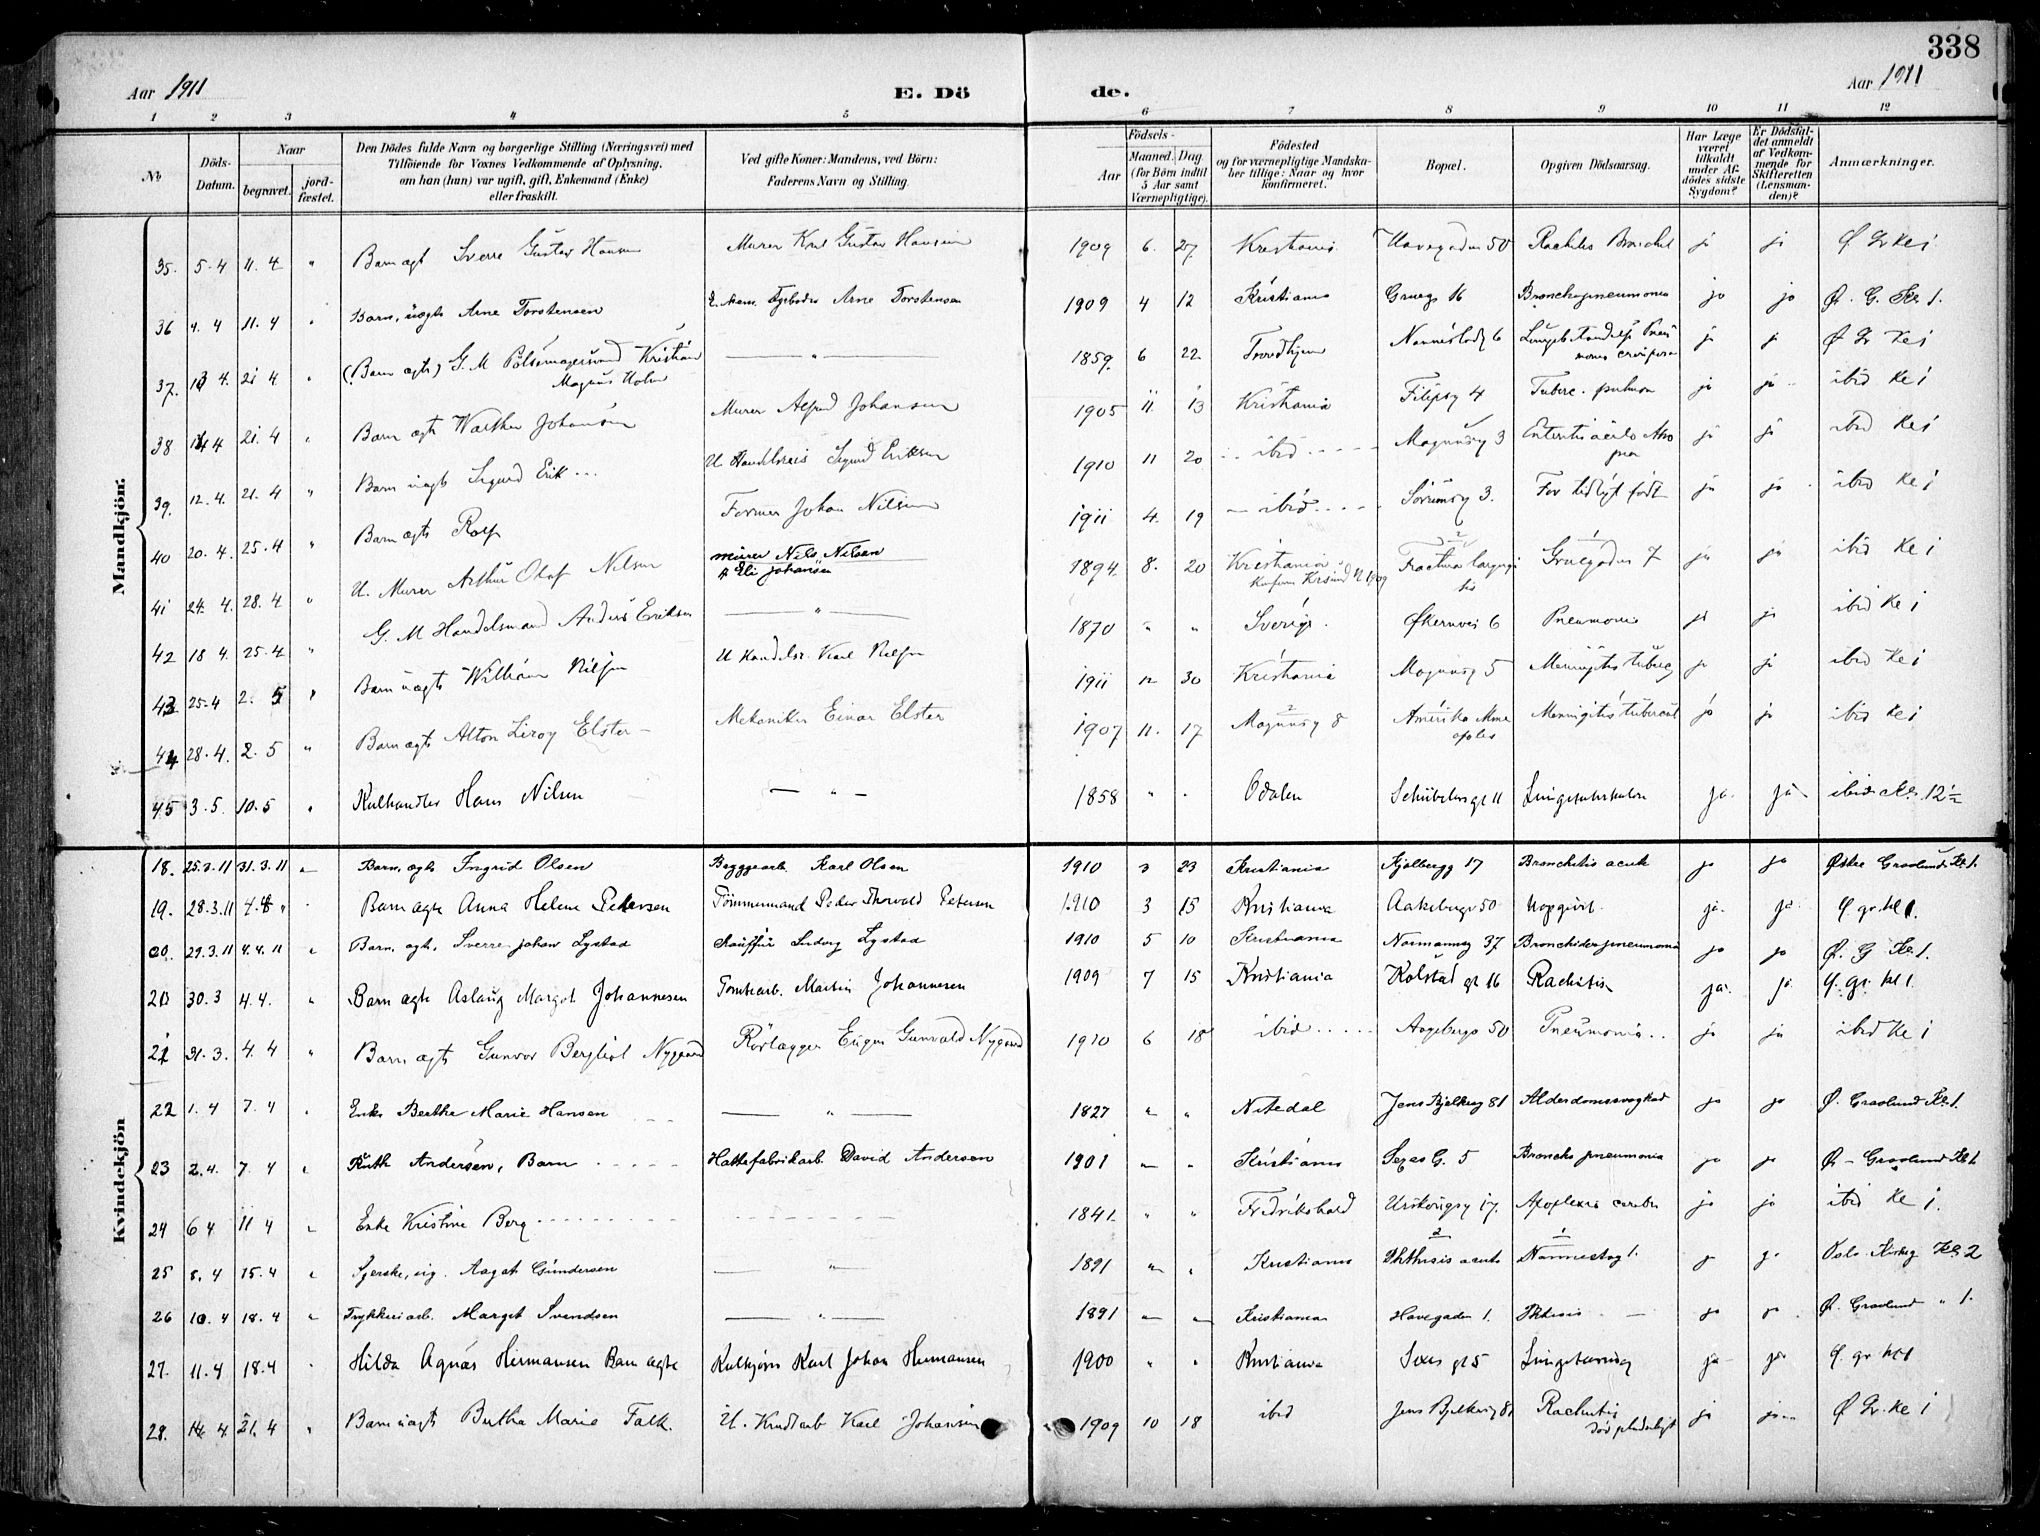 338
Aar 1911
E. Dö
de.
Aar 1911
1 2 3 4 5 6 7 8 9 10 11 12
No
Döds-Datum.
Naar
begravet.
jord-fæstet.
Den Dödes fulde Navn og borgerlige Stilling (Næringsvei) med
Tilföiende for Voxnes Vedkommende af Oplysning,
om han (hun) var ugift, gift, Enkemand (Enke)
eller fraskilt.
Ved gifte Koner: Mandens, ved Börn:
Faderens Navn og Stilling.
Födsels-
Aar
Maaned. Dag
(for Börn indtil
5 Aar samt
Værnepligtige).
Födested
og for værnepligtige Mandska-
ber tillige: Naar og hvor
konfirmeret.
Bopæl.
Opgiven Dödsaarsag.
Har Læge
været
tilkaldt
under Af-
dödes sidste
Sygdom?
Er Dödsfal-
det anmeldt
af Vedkom-
mende for
Skifteretten
(Lensman-
den)?
Anmærkninger.
Mandkjön.
35. 5.4 11.4 " Barn ægt Sverre Gustav Hansen Murer Karl Gustav Hansen 1909 6. 27. Kristiania 50 Rachitis ja ja Ø Gr Kl 1
36 4.4 11.4 " Barn, uægte Arne Torstensen Arne Torstensen 1909 4 12 Kristiania Grueg 16 Bronchopneumonia ja ja Ø. G. Kl 1.
37. 4. 21 4 " (Barn ægte) G. M Pölsemager Kristian
Magnus Holm — " — 1859. 6 22. Trondhjem 6 ja ja Ø Gr Kl 1
38 4 21.4 " Barn ægte Walther Johansen Murer Alfred Johansen 1905 11. 13 Kristiania Filipsg 4 Tuberc. pulmon ja ja ibid Kl 1
39. 12.4. 21.4 " Barn uægte Sigurd Erik U Sigurd Eriksen 1910 11 20 ibid Magnusg 3 ja ja ibid Kl 1
40 20.4. 25.4 " Barn ægte Rolf Former Johan Nilsen 1911 4. 19 — ibid Sörumsg 3. For tidligt födt ja ja ibid Kl 1
41 24. 4. 28.4 " U. Murer Arthur Olaf Nilsen murer Nils Nilsen
& Eli Johansen 1894. 8. 20 Kristiania Fractura Gruegaden 7 ja ja ibid Kl 1
42 18 4. 25.4 " G. M Handelsmand Anders Eriksen — " — 1870 " " Sverige. Økernvei 6 Pneumonia ja ja ibid Kl 1
43 25.4 2. 5 " Barn uægte William Nilsen U Karl Nilsen 1911 30 Kristiania Magnusg 5 Meningitis tuberc ja ja ibid Kl 1
44 28.4. 2.5 " Barn ægte Alton Leroy Elster — Mekaniker Einar Elster 1907 11. 17 Magnusg 8 Amerika Meningitis tubercul ja ja ibid Kl 1
45 3.5. 10.5 " Kulhandler Hans Nilsen — " — 1858 " . Odalen Schübelersgt 11 ja. ja ibid Kl. 12½
Kvindekjön
18. 25.3.11 31.3.11 " Barn, ægte Ingrid Olsen Byggearb. Karl Olsen 1910 3 23 Kristiania Kjølbergg 17 Bronchitis acut ja ja Østre Gravlund Kl 1.
19. 28.3.11 " Barn ægte Anna Helene Petersen Tömmermand Peder Thorvald Petersen 1910 3 15 Kristiania Aakebergv 50 Uopgivet. ja. ja. Ø. gr. kl 1.
20. 29.3.11 4.4.11 " Barn, ægte, Sverre Johan Lystad Ludvig Lystad 1910 5 10 Kristiania Normannsg 37 ja ja Ø. G Kl 1.
30.3 4.4. " Barn ægte Aslaug Margot Johannesen Tomtearb. Martin Johannesen 1909 7 15 Kristiania Kolstad gt 16 Rachitis ja. ja Ø. gr. kl 1.
21 31.3. 4.4 " Barn ægte Gunvor Bergliot Nygaard Rörlægger Gunvald Nygaard 1910 6 18 ibid Aagebergv 50 Pneumonia ja ja ibid Kl 1
22 1.4 7.4 . Enke Bertha Marie Hansen — " — 1827 " " Nitedal Jens Bjelkesg 81 Alderdomssvaghed ja ja Ø. Gravlund Kl 1.
23 2.4. 7.4 " Ruth Andersen, Barn Hattefabrikarb. David Andersen 1901 " " Kristiania Sexes G. 5 Broncho pneumonia ja ja Ø — Gravlund Kl 1
24 6 4 11 4 " Enke Kristine Berg 1841. " " Fredrikshald Urskougsg 17. Apoplexia cerebri ja ja ibid Kl 1.
25 8.4 15.4 " Syerske, ug. Aagot Gundersen — " — 1891 " " Kristiania Phthisis acuta Nannestadg 1. ja ja Oslo Kirkeg Kl 2
26 10.4 18.4 " Trykkeriarb. Margit Svendsen — " — 1891 " " Kristiania Havegaden 1. Phthisis — ja ja. Ø. Gravlund " 1.
27. 11.4 18.4 " Hilda Agnes Hermansen Barn ægte Kulkjörer Karl Johan Hermansen 1900 " " Kristiania Sexes gt 5 ja ja. Ø. gr kl 1
28. 14 4 21.4 " Barn uægte Bertha Marie Falk. U. Karl Johansen 1909 10 18 ibid Jens Bjelkesg 81 Rachitis
död pludseligt ja ja Ø Gr. Kl 1